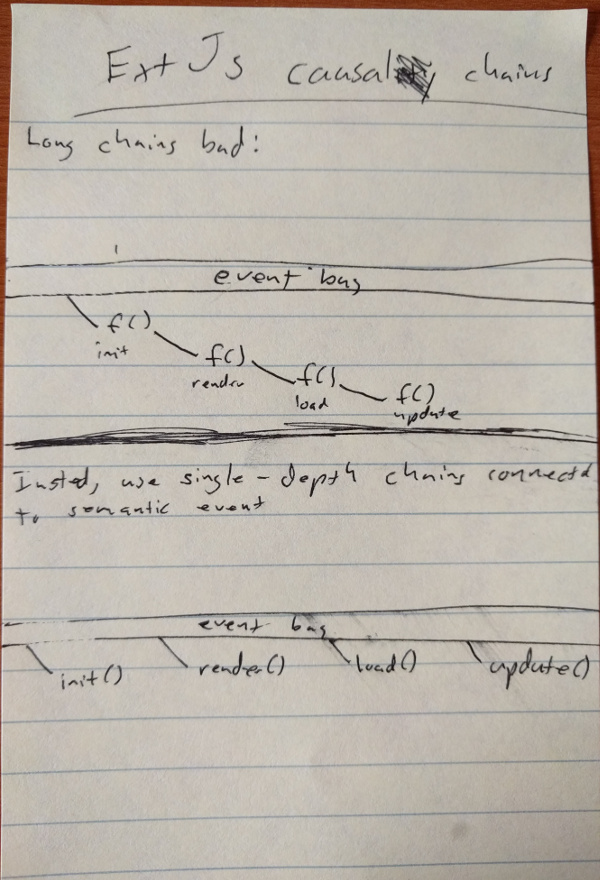 ExtJs causal chains
Long chains bad:
event bus
f()
init
f()
render
f()
load
f()
update
Insted, use single-depth chains connectd
to semantic event
event bus
init() render() load() update()